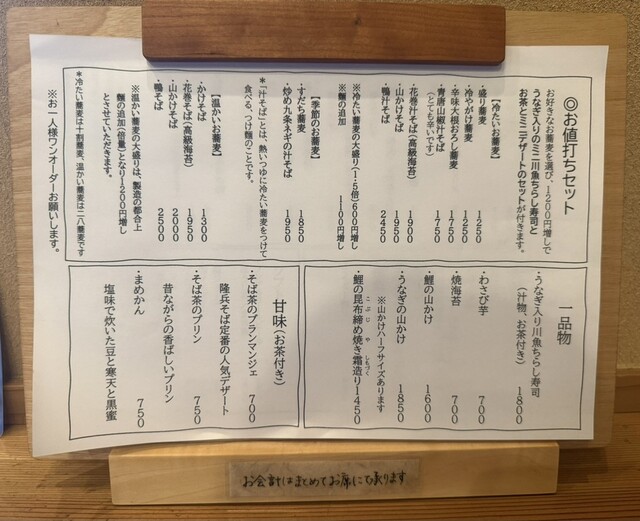 ◎お値打ちセット
お好きなお蕎麦を選び、1200円増しで
うなぎ入りのミニ川魚ちらし寿司と
お茶とミニデザートのセットが付きます。
【冷たいお蕎麦】
・盛り蕎麦 1250
・冷やがけ蕎麦 1250
・辛味大根おろし蕎麦 1750
・青唐山椒汁そば 1750
(とても辛いです)
・花巻汁そば(高級海苔) 1950
・山かけ汁そば 1900
・鴨汁そば 2450
※冷たい蕎麦の大盛り(1・5倍)600円増し
※麵の追加 1100円増し
【季節のお蕎麦】
・すだち蕎麦 1850
・炒め九条ネギの汁そば 1950
*「汁そば」とは、熱いつゆに冷たい蕎麦をつけて
食べる、つけ麵のことです。
【温かいお蕎麦】
・かけそば 1300
・花巻そば(高級海苔) 1950
・山かけそば 2000
・鴨そば 2500
※温かい蕎麦の大盛りは、製造の都合上
麵の追加(倍量)となり1200円増し
とさせていただきます。
*冷たい蕎麦は十割蕎麦、温かい蕎麦は二八蕎麦です
※お一人様ワンオーダーお願いします。
一品物
・うなぎ入り川魚ちらし寿司
(汁物、お茶付き) 1800
・わさび芋 700
・焼海苔 700
・鯉の山かけ 1600
・うなぎの山かけ 1850
※山かけハーフサイズあります
・鯉の昆布締め焼き霜造り 1450
こぶじ や しもづく
甘味(お茶付き)
・そば茶のブランマンジェ 700
隆兵そば定番の人気デザート
・そば茶のプリン 750
昔ながらの香ばしいプリン
・まめかん 750
塩味で炊いた豆と寒天と黒蜜
お会計はまとめてお席にて承ります